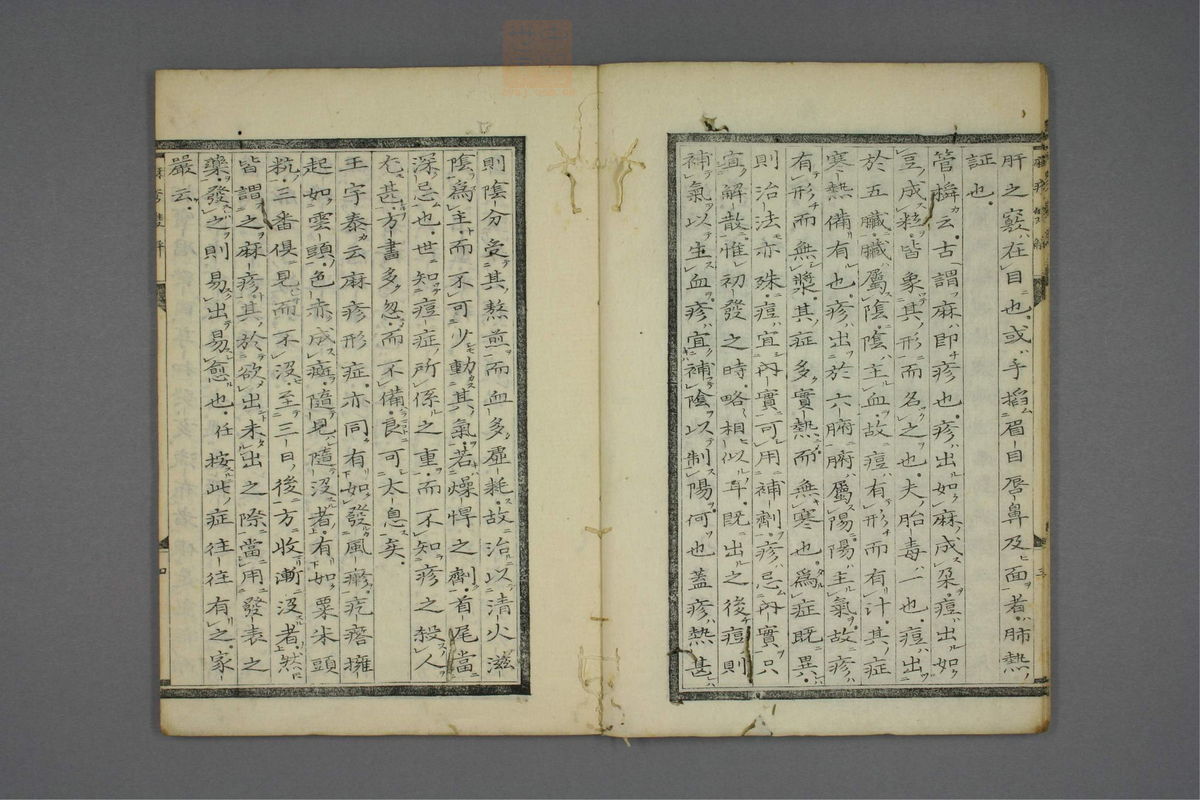 肝之竅在目也或手搯眉目唇鼻及面者肺熱
証也
管橓云古謂麻即疹也疹出如麻成朶痘出如
豆成粒皆象其形而名之也夫胎毒一也痘出
於五臟臟屬陰陰主血故痘有形而有汁其症
寒熱備有也疹出於六腑腑屬陽陽主氣故疹
有形而無漿其症多實熱而無寒也爲症既異
則治法亦殊痘宜內實可用補劑疹忌內實只
宜解散惟初發之時略相似耳既出之後痘則
補氣以生血疹宜補陰以制陽何也蓋疹熱甚
則陰分受其熬煎而血多虛耗故治以清火滋
陰爲主而不可少動其氣若燥悍之劑首尾當
深忌也世知痘症所係之重而不知疹之殺人
尤甚方書多忽而不備良可太息矣
王宇泰云麻疹形症亦同有如發風𤺋疙瘩擁
起如雲頭色赤成斑隨見隨沒者有如粟米頭
粃三番俱見而不沒至三日後方收漸沒者然
皆謂之麻疹其於欲出未出之際當用發表之
藥發之則易出易愈也任按此症往往有之家
嚴云
三
四